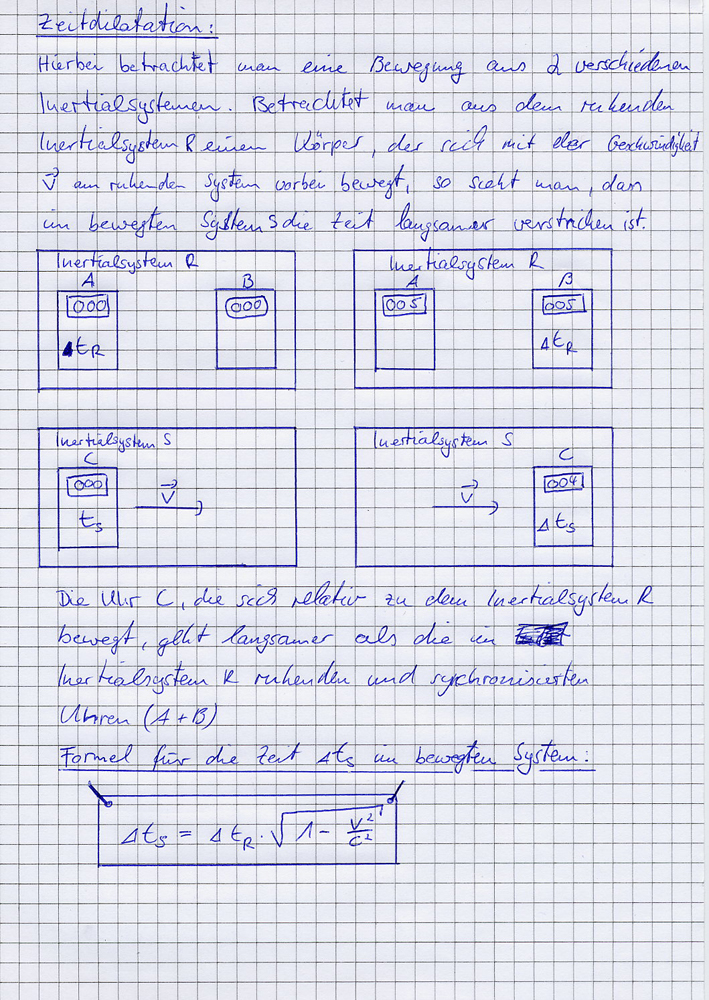 Zeitdilatation:
Hierbei betrachtet man eine Bewegung aus 2 verschiedenen
Inertialsystemen. Betrachtet man aus dem ruhenden
Inertialsystem R einen Körper, der sich mit der Geschwindigkeit
v⃗ am ruhenden System vorbei bewegt, so sieht man, dass
im bewegten System S die Zeit langsamer verstrichen ist.
Inertialsystem R
A B
000 000
ΔtR
Inertialsystem R
A B
005 005
ΔtR
Inertialsystem S
C
000
v⃗
tS
Inertialsystem S
C
004
v⃗
ΔtS
Die Uhr C, die sich relativ zu dem Inertialsystem R
bewegt, geht langsamer als die im
Inertialsystem R ruhenden und sychronisierten
Uhren (A+B)
Formel für die Zeit ΔtS im bewegten System:
ΔtS = ΔtR · √(1 - v²/c²)